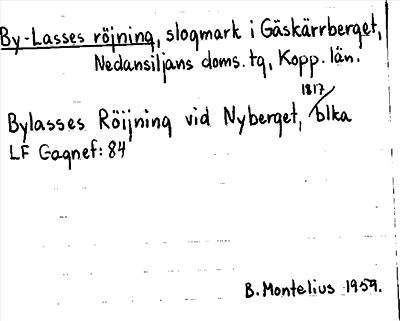 By-Lasses röjning, slogmark i Gäskärrberget,
Nedansiljans doms. tg, Kopp. län.
Bylasses Röijning vid Nyberget, 1817/blka
LF Gagnef: 84
B. Montelius 1959.